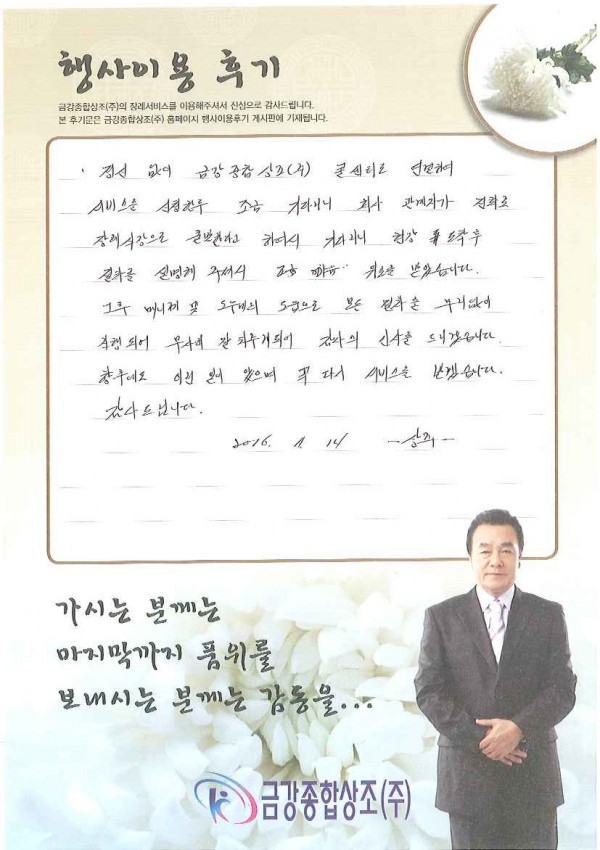 행사이용 후기
금강종합상조(주)의 장례서비스를 이용해주셔서 진심으로 감사드립니다.
본 후기문은 금강종합상조(주) 홈페이지 행사이용후기 게시판에 기재됩니다.
경신 없이 금강종합상조(주) 콜센터로 연락하여
서비스을 신청한후 조금 기다리니 회사 관계자가 전화로
장례식장으로 출발한다고 하여서 기다리니 현장 도착후
절차를 설명해 주셔서 위로를 받았습니다.
그후 매니져 및 도우미의 도움으로 모든 절차를 무리없이
진행되어 무사히 잘 치루게되어 감사의 인사를 드리겠습니다.
향후에도 이런 일이 있으면 꼭 다시 서비스을 받겠습니다.
감사드립니다.
2016. 1. 14 -상주-
가시는 분께는
마지막까지 품위를
보내시는 분께는 감동을...
금강종합상조(주)